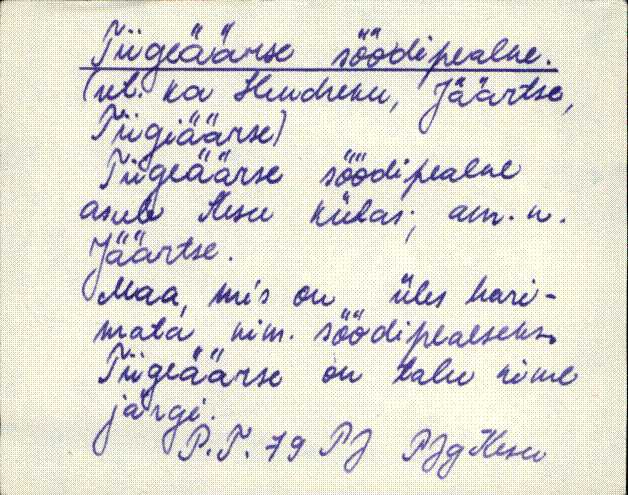 Tiigeäärse söödipealne.
(vt. ka Hendreku, Jäärtse,
Tiigiäärse)
Tiigeäärse söödipealne
asub Kesu külas; am. n.
Jäärtse.
Maa, mis on üles hari-
mata nim. söödipealseks.
Tiigeäärse on talu nime
järgi.
P.T. 79 PJ PJg Kesu